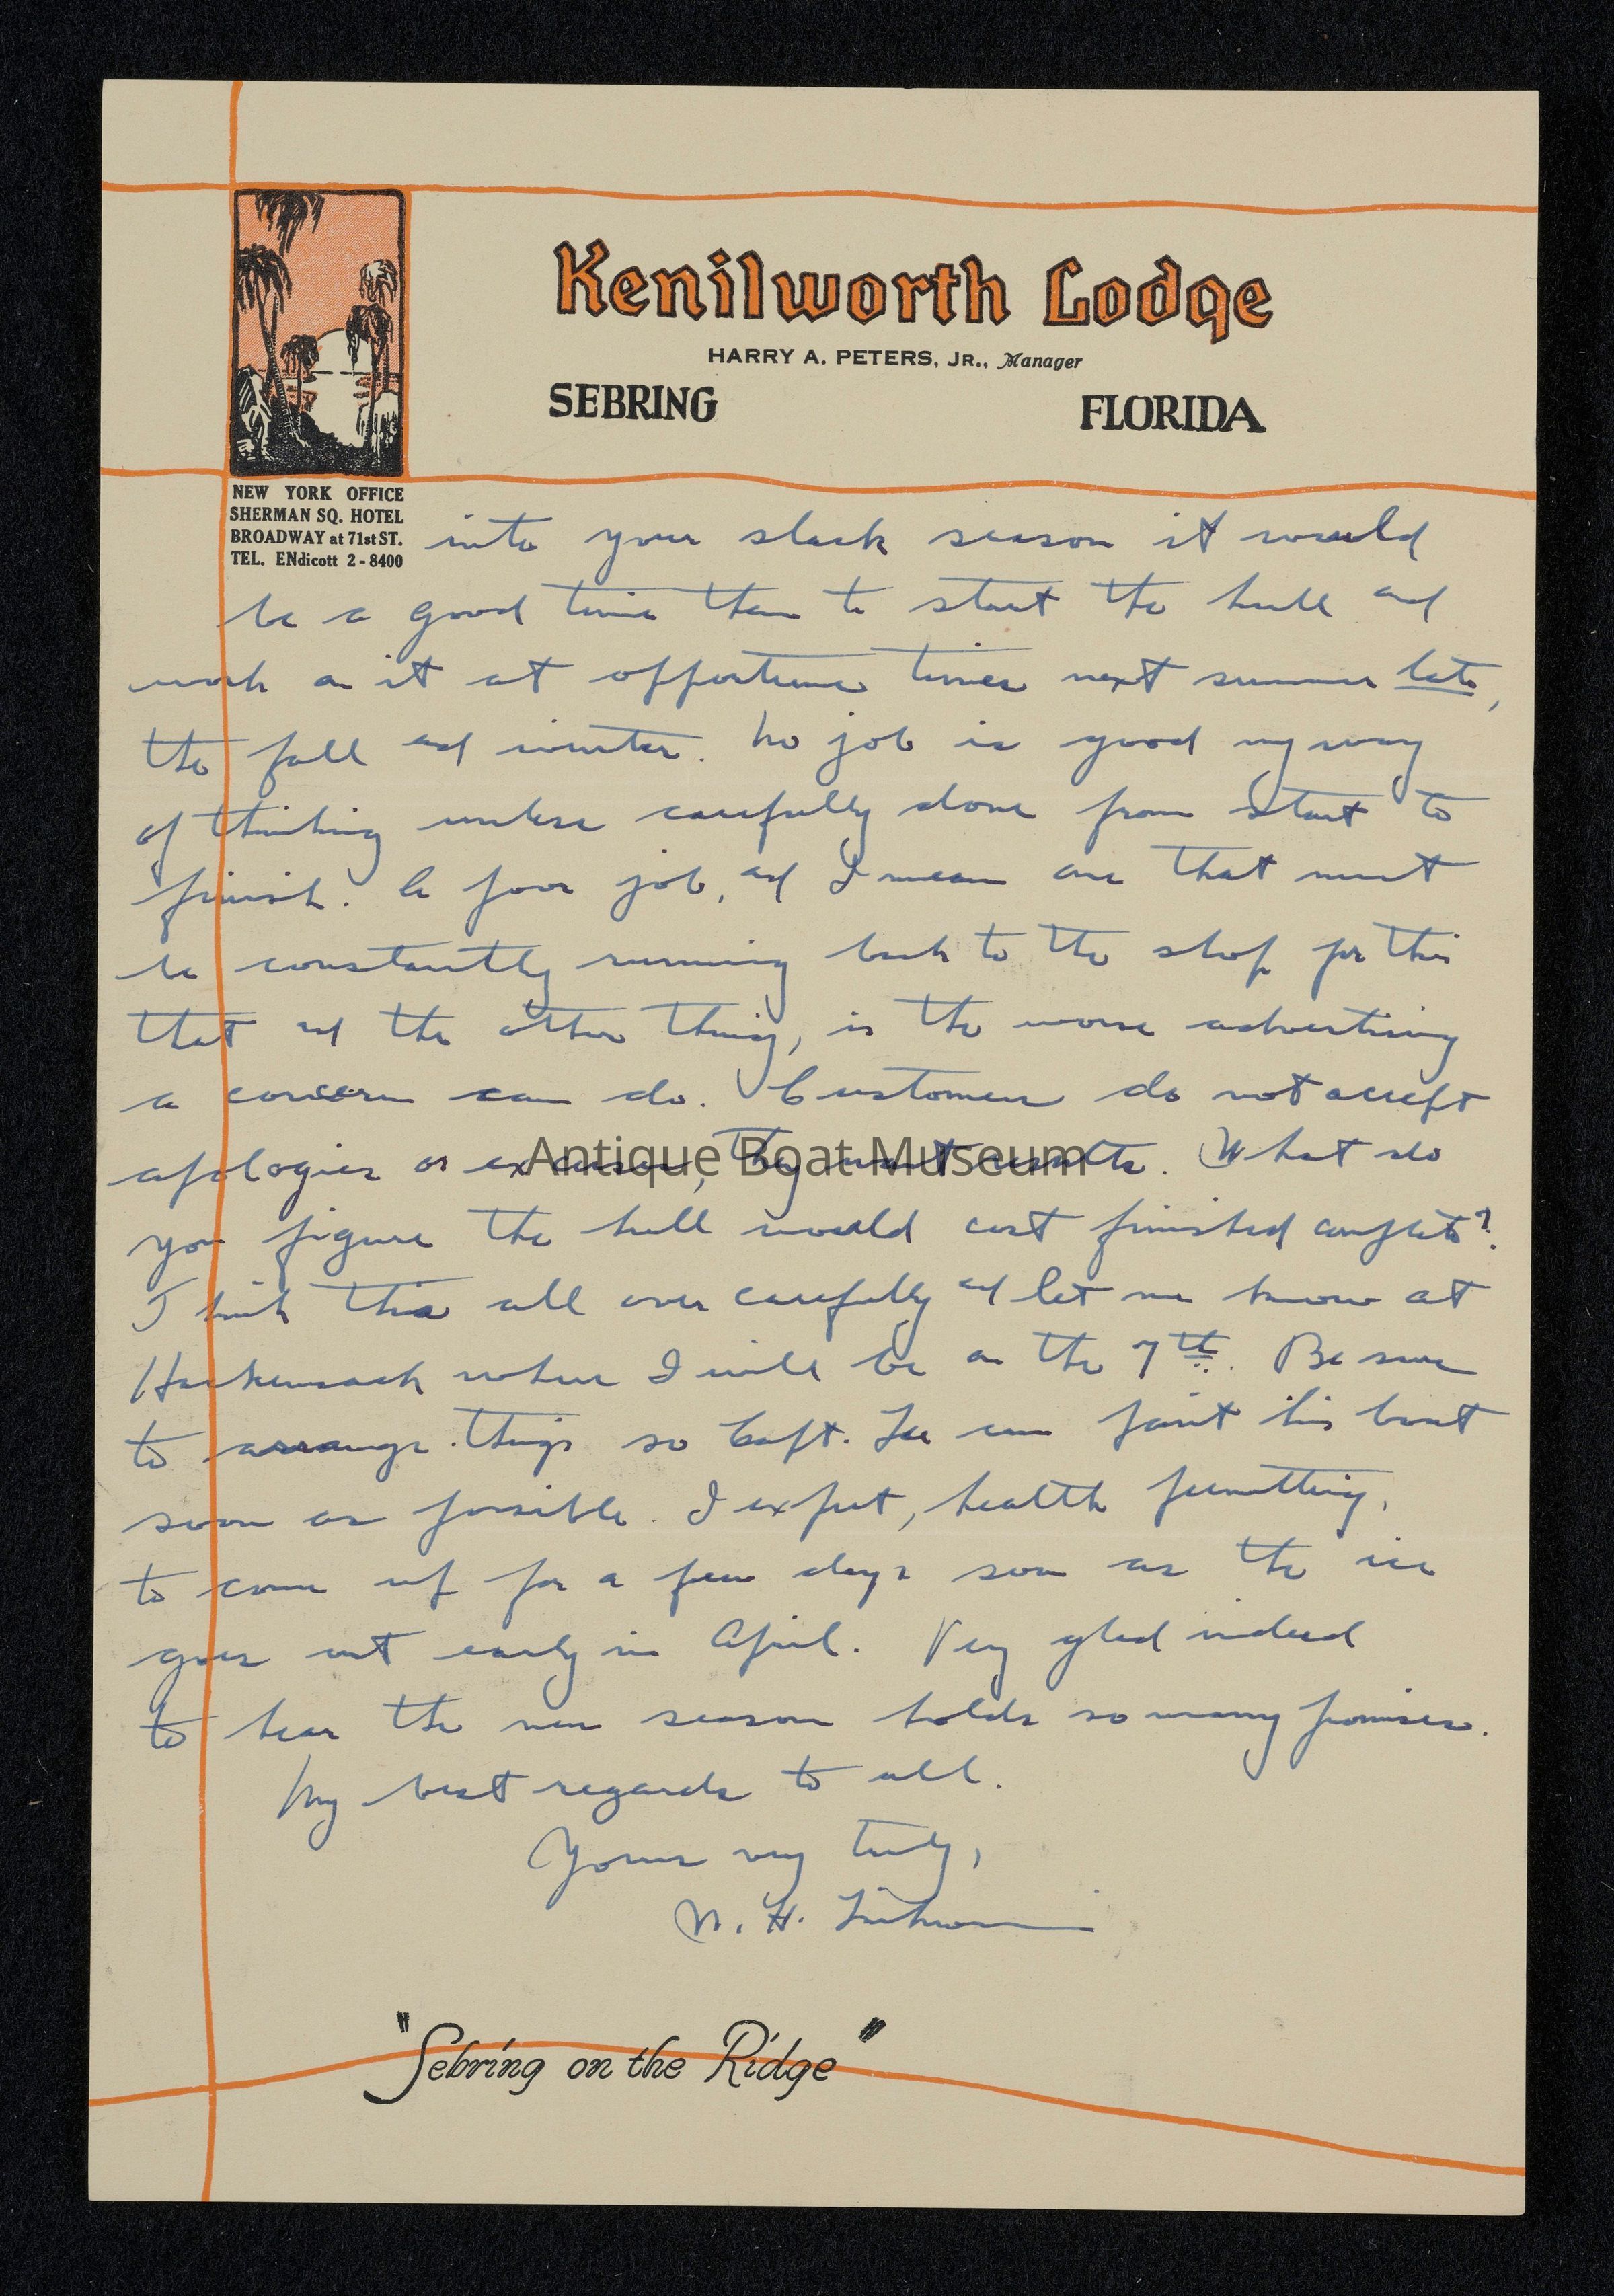 Kenilworth Lodge
HARRY A. PETERS, JR., Manager
SEBRING FLORIDA
NEW YORK OFFICE
SHERMAN SQ. HOTEL
BROADWAY at 71st ST.
TEL. ENdicott 2-8400
into your slack season it would
be a good time then to start the hull and
work on it at opportune times next summer late,
the fall and winter. No job is good my way
of thinking unless carefully done from start to
finish. A poor job, and I mean one that must
be constantly running back to the shop for this
that and the other thing, is the worse advertising
a concern can do. Customers do not accept
apologies or excuses, they want results. What do
Antique Boat Museum
you figure the hull would cost finished complete?
Think this all over carefully and let me know at
Hackensack where I will be on the 7th. Be sure
to arrange things so Capt. Lee can paint his boat
soon as possible. I expect, health permitting,
to come up for a few days soon as the ice
goes out early in April. Very glad indeed
to hear the new season holds so many promises.
My best regards to all.
Yours very truly,
H.
"Sebring on the Ridge"